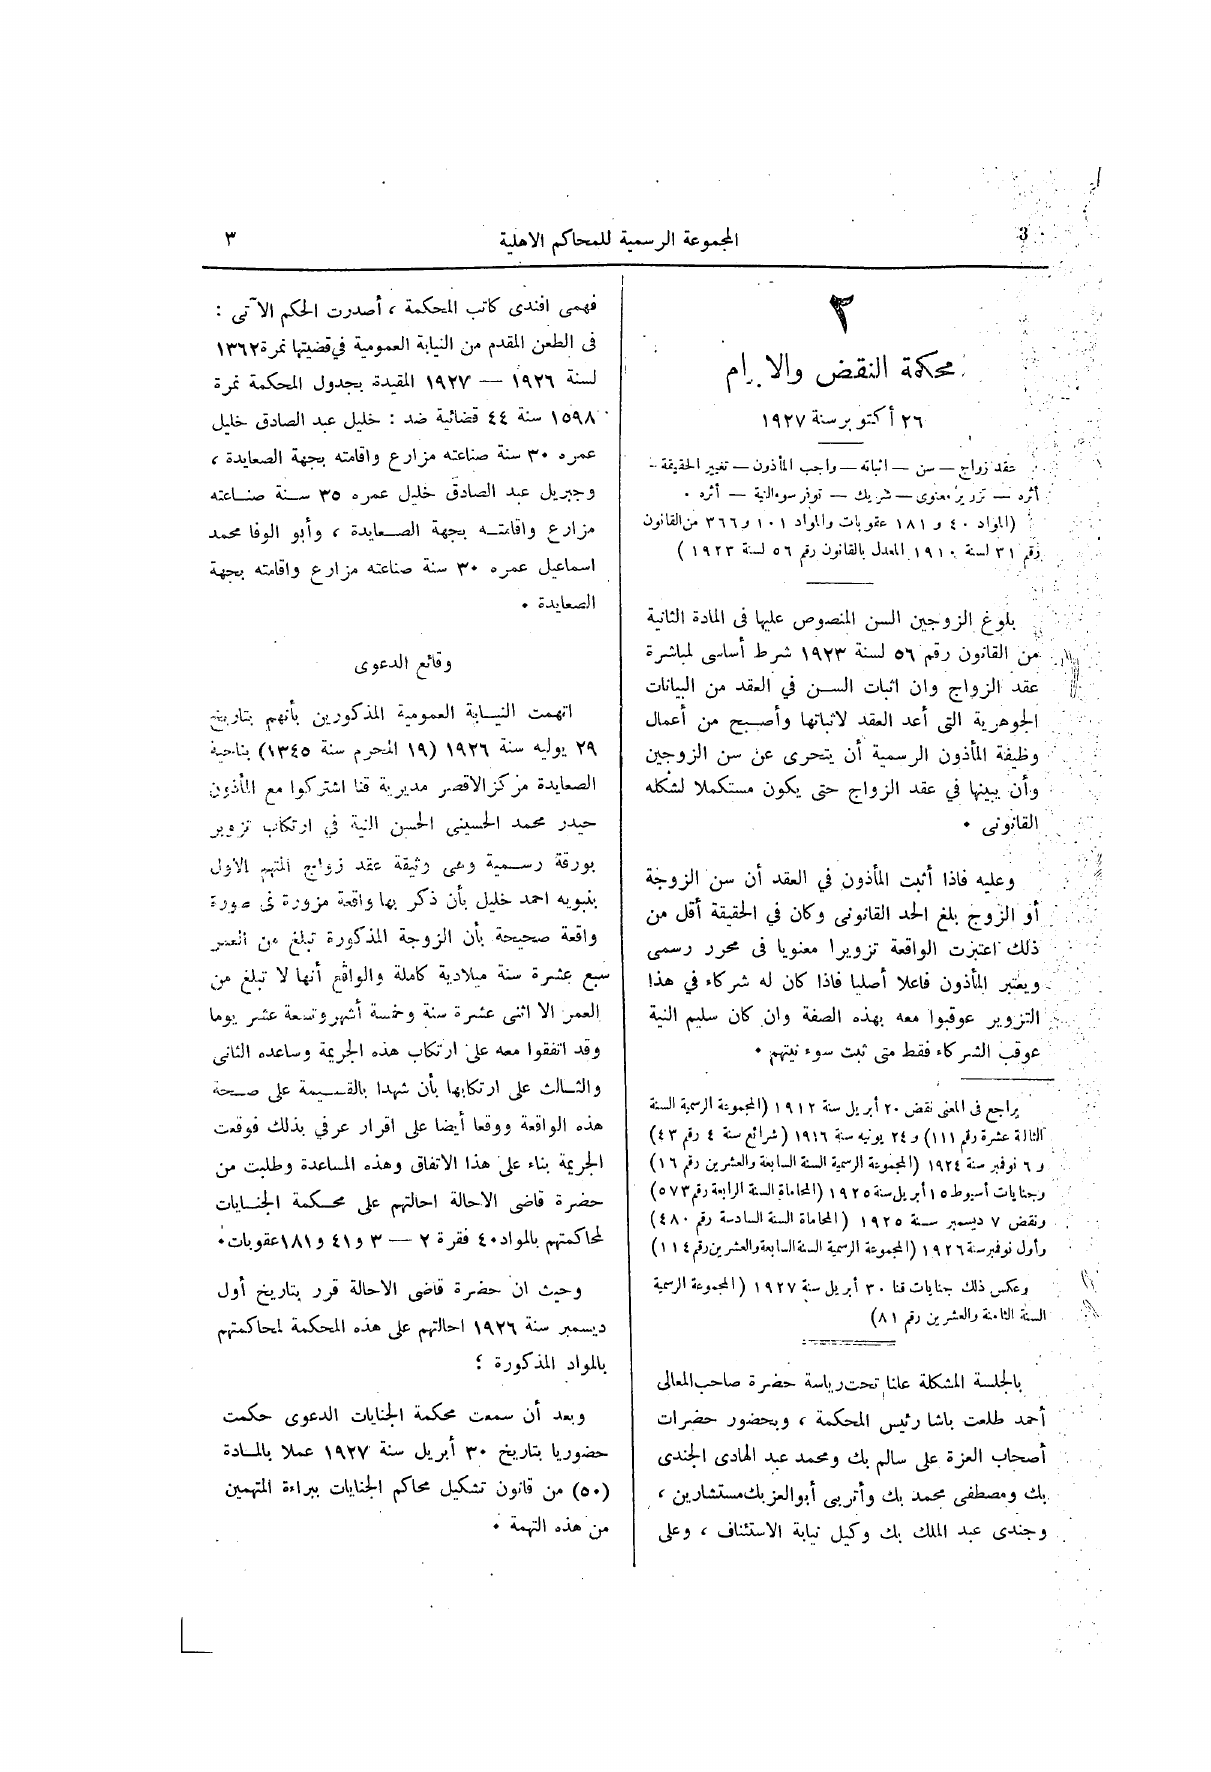 3
المجموعة الرسمية للمحاكم الاهلية
٣
٣
محكمة النقض والابرام
٢٦ أكتوبر سنة ١٩٢٧
عقد زواج — سن — اثباته — واجب المأذون — تغيير الحقيقة —
أثره — تزوير معنوى — شريك — توفر سوء النية — أثره .
(المواد ٤٠ و ١٨١ عقوبات والمواد ١٠١ و ٣٦٦ من القانون
رقم ٣١ لسنة ١٩١٠ المعدل بالقانون رقم ٥٦ لسنة ١٩٢٣ )
بلوغ الزوجين السن المنصوص عليها فى المادة الثانية
من القانون رقم ٥٦ لسنة ١٩٢٣ شرط أساسى لمباشرة
عقد الزواج وان اثبات السن في العقد من البيانات
الجوهرية التى أعد العقد لاثباتها وأصبح من أعمال
وظيفة المأذون الرسمية أن يتحرى عن سن الزوجين
وأن يبينها في عقد الزواج حتى يكون مستكملا لشكله
القانونى .
وعليه فاذا أثبت المأذون في العقد أن سن الزوجة
أو الزوج بلغ الحد القانونى وكان في الحقيقة أقل من
ذلك اعتبرت الواقعة تزويرا معنويا فى محرر رسمى
ويعتبر المأذون فاعلا أصليا فاذا كان له شركاء في هذا
التزوير عوقبوا معه بهذه الصفة وان كان سليم النية
عوقب الشركاء فقط متى ثبت سوء نيتهم .
يراجع فى المعنى نقض ٢٠ أبريل سنة ١٩١٢ (المجموعة الرسمية السنة
الثالثة عشرة رقم ١١١) و ٢٤ يونيه سنة ١٩١٦ (شرائع سنة ٤ رقم ٤٣)
و ٦ نوفمبر سنة ١٩٢٤ (المجموعة الرسمية السنة السابعة والعشرين رقم ١٦)
وجنايات أسيوط ١٥ أبريل سنة ١٩٢٥ (المحاماة السنة الرابعة رقم ٥٧٣)
ونقض ٧ ديسمبر سنة ١٩٢٥ (المحاماة السنة السادسة رقم ٤٨٠)
وأول نوفمبر سنة ١٩٢٦ (المجموعة الرسمية السنة السابعة والعشرين رقم ١١٤)
وعكس ذلك جنايات قنا ٣٠ أبريل سنة ١٩٢٧ (المجموعة الرسمية
السنة الثامنة والعشرين رقم ٨١)
بالجلسة المشكلة علنا تحت رياسة حضرة صاحب المعالى
أحمد طلعت باشا رئيس المحكمة ، وبحضور حضرات
أصحاب العزة على سالم بك ومحمد عبد الهادى الجندى
بك ومصطفى محمد بك وأتربى أبو العز بك مستشارين ،
وجندى عبد الملك بك وكيل نيابة الاستئناف ، وعلى
فهمى افندى كاتب المحكمة ، أصدرت الحكم الآتى :
فى الطعن المقدم من النيابة العمومية في قضيتها نمرة ١٣٦٢
لسنة ١٩٢٦ — ١٩٢٧ المقيدة بجدول المحكمة نمرة
١٥٩٨ سنة ٤٤ قضائية ضد : خليل عبد الصادق خليل
عمره ٣٠ سنة صناعته مزارع واقامته بجهة الصعايدة ،
وجبريل عبد الصادق خليل عمره ٣٥ سنة صناعته
مزارع واقامته بجهة الصعايدة ، وأبو الوفا محمد
اسماعيل عمره ٣٠ سنة صناعته مزارع واقامته بجهة
الصعايدة .
وقائع الدعوى
اتهمت النيابة العمومية المذكورين بأنهم بتاريخ
٢٩ يوليه سنة ١٩٢٦ (١٩ المحرم سنة ١٣٤٥) بناحية
الصعايدة مركز الاقصر مديرية قنا اشتركوا مع المأذون
حيدر محمد الحسينى الحسن النية في ارتكاب تزوير
بورقة رسمية وهى وثيقة عقد زواج المتهم الاول
بنبويه احمد خليل بأن ذكر بها واقعة مزورة فى صورة
واقعة صحيحة بأن الزوجة المذكورة تبلغ من العمر
سبع عشرة سنة ميلادية كاملة والواقع أنها لا تبلغ من
العمر الا اثنى عشرة سنة وخمسة أشهر وتسعة عشر يوما
وقد اتفقوا معه على ارتكاب هذه الجريمة وساعده الثانى
والثالث على ارتكابها بأن شهدا بالقسيمة على صحة
هذه الواقعة ووقعا أيضا على اقرار عرفي بذلك فوقعت
الجريمة بناء على هذا الاتفاق وهذه المساعدة وطلبت من
حضرة قاضى الاحالة احالتهم على محكمة الجنايات
لمحاكمتهم بالمواد ٤٠ فقرة ٢ — ٣ و ٤١ و ١٨١ عقوبات .
وحيث ان حضرة قاضى الاحالة قرر بتاريخ أول
ديسمبر سنة ١٩٢٦ احالتهم على هذه المحكمة لمحاكمتهم
بالمواد المذكورة ؛
وبعد أن سمعت محكمة الجنايات الدعوى حكمت
حضوريا بتاريخ ٣٠ أبريل سنة ١٩٢٧ عملا بالمادة
(٥٠) من قانون تشكيل محاكم الجنايات ببراءة المتهمين
من هذه التهمة .